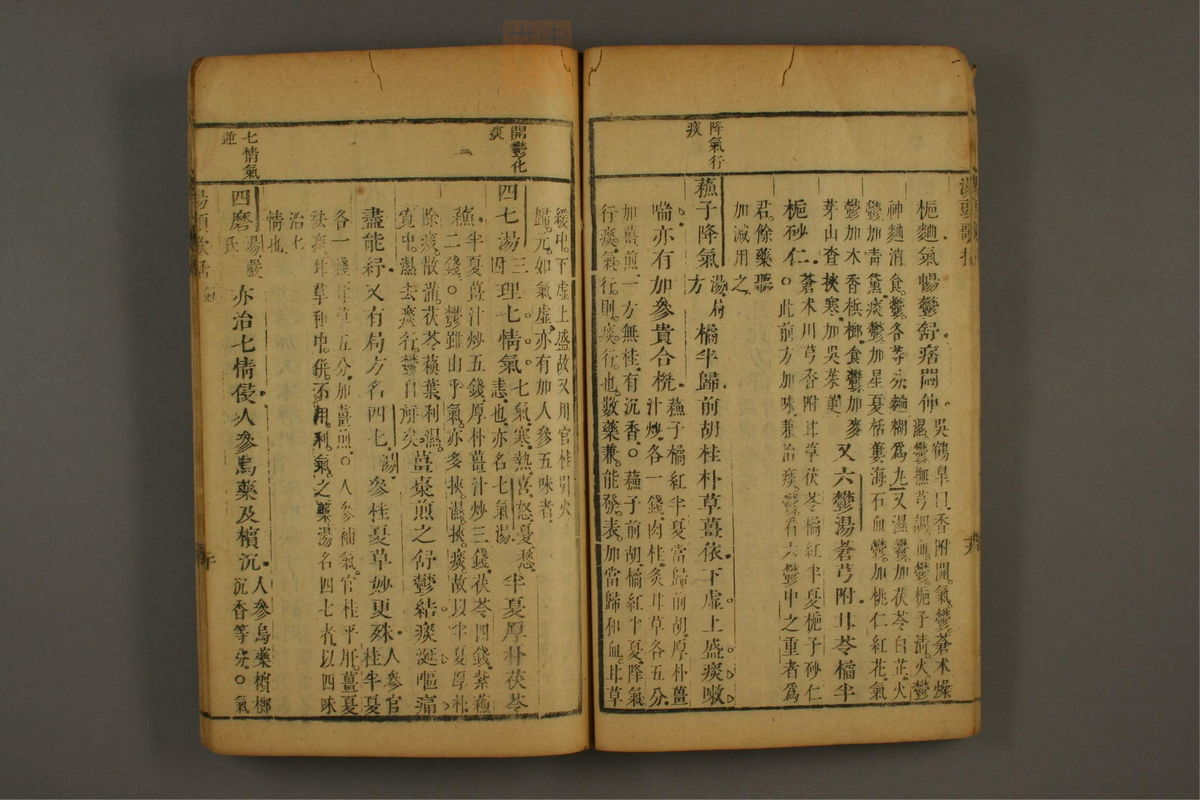 梔麯氣暢鬱舒痞悶伸
吳鶴皋曰香附開氣鬱蒼术燥
濕鬱撫芎調血鬱梔子清火鬱
神麯消食鬱各等分麯糊爲丸又濕鬱加茯苓白芷火
鬱加青黛痰鬱加星夏栝蔞海石血鬱加桃仁紅花氣
鬱加木香檳榔食鬱加麥
芽山查挾寒加吳茱萸
又六鬱湯蒼芎附甘苓橘半
梔砂仁
蒼术川芎香附甘草茯苓橘紅半夏梔子砂仁
○此前方加味兼治痰鬱看六鬱中之重者爲
君餘藥聽
加減用之
降氣行
痰
蘇子降氣
湯局
方
橘半歸前胡桂朴草薑依下虛上盛痰嗽
喘亦有加參貴合機
蘇子橘紅半夏當歸前胡厚朴薑
汁炒各一錢肉桂炙甘草各五分
加薑煎一方無桂有沉香○蘇子前胡橘紅半夏降氣
行痰氣行則痰行也數藥兼能發表加當歸和血甘草
緩中下虛上盛故又用官桂引火
歸元如氣虛亦有加人參五味者
開鬱化
痰
四七湯
三
因
理七情氣
七氣寒熱喜怒憂愁
恚也亦名七氣湯
半夏厚朴茯苓
蘇
半夏薑汁炒五錢厚朴薑汁炒三錢茯苓四錢紫蘇
二錢○鬱雖由乎氣亦多挾濕挾痰故以半夏厚朴
除痰散滿茯苓蘇葉利濕
寬中濕去痰行鬱自解矣
薑棗煎之舒鬱結痰涎嘔痛
盡能紓又有局方名四七湯參桂夏草妙更殊
人參官
桂半夏
各一錢甘草五分加薑煎○人參補氣官桂平肝薑夏
祛痰甘草和中並不用利氣之藥湯名四七者以四味
治七
情也
七情氣
逆
四磨
湯嚴
氏
亦治七情侵人參烏藥及檳沉
人參烏藥檳榔
沉香等分○氣